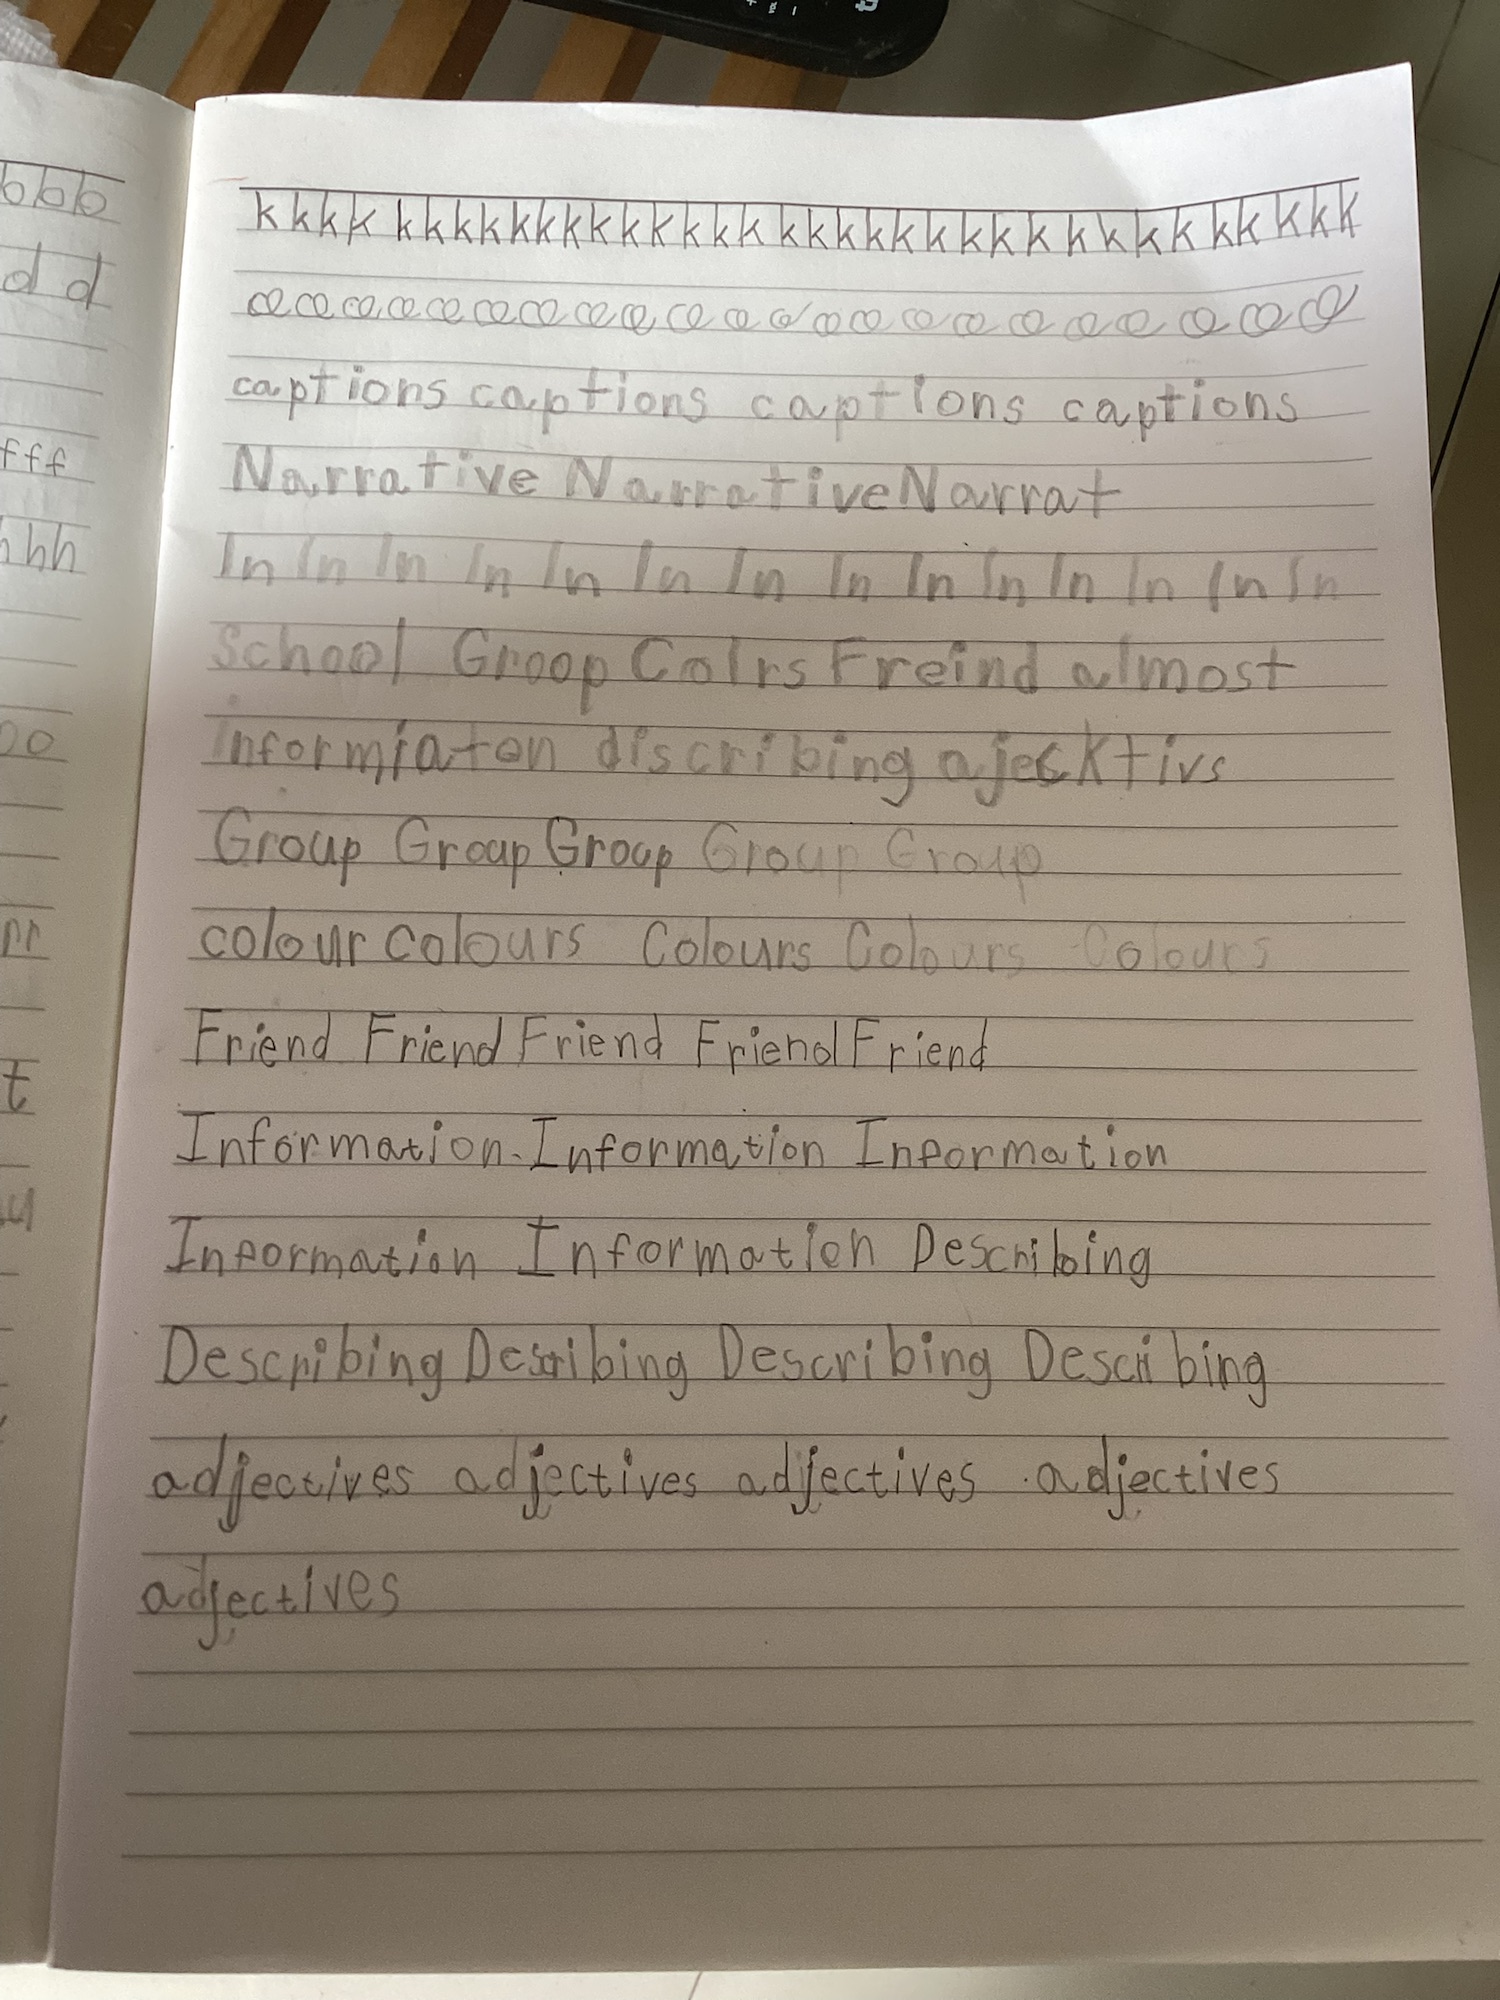 bbb
d d
fff
hhh
rr
t
kkkk kkkkkkkkkkkkkkkkkkkkkkkkkkkk
captions captions captions captions
Narrative Narrative Narrat
In In In In In In In In In In In In In In
School Groop Colrs Freind almost
informiaton discribing ajecktivs
Group Group Group Group Group
colour colours Colours Colours Colours
Friend Friend Friend Friend Friend
Information. Information Information
Information Information Describing
Describing Describing Describing Describing
adjectives adjectives adjectives adjectives
adjectives